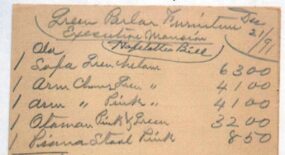 Green Parlor Furniture Dec
Executive Mansion 21/91
Hofstatter Bill
1 Sofa Green 6300
1 Arm Chair Green 4100
1 Arm " Pink " 4100
1 Otaman Pink & Green 3200
1 Piano Stool Pink 850